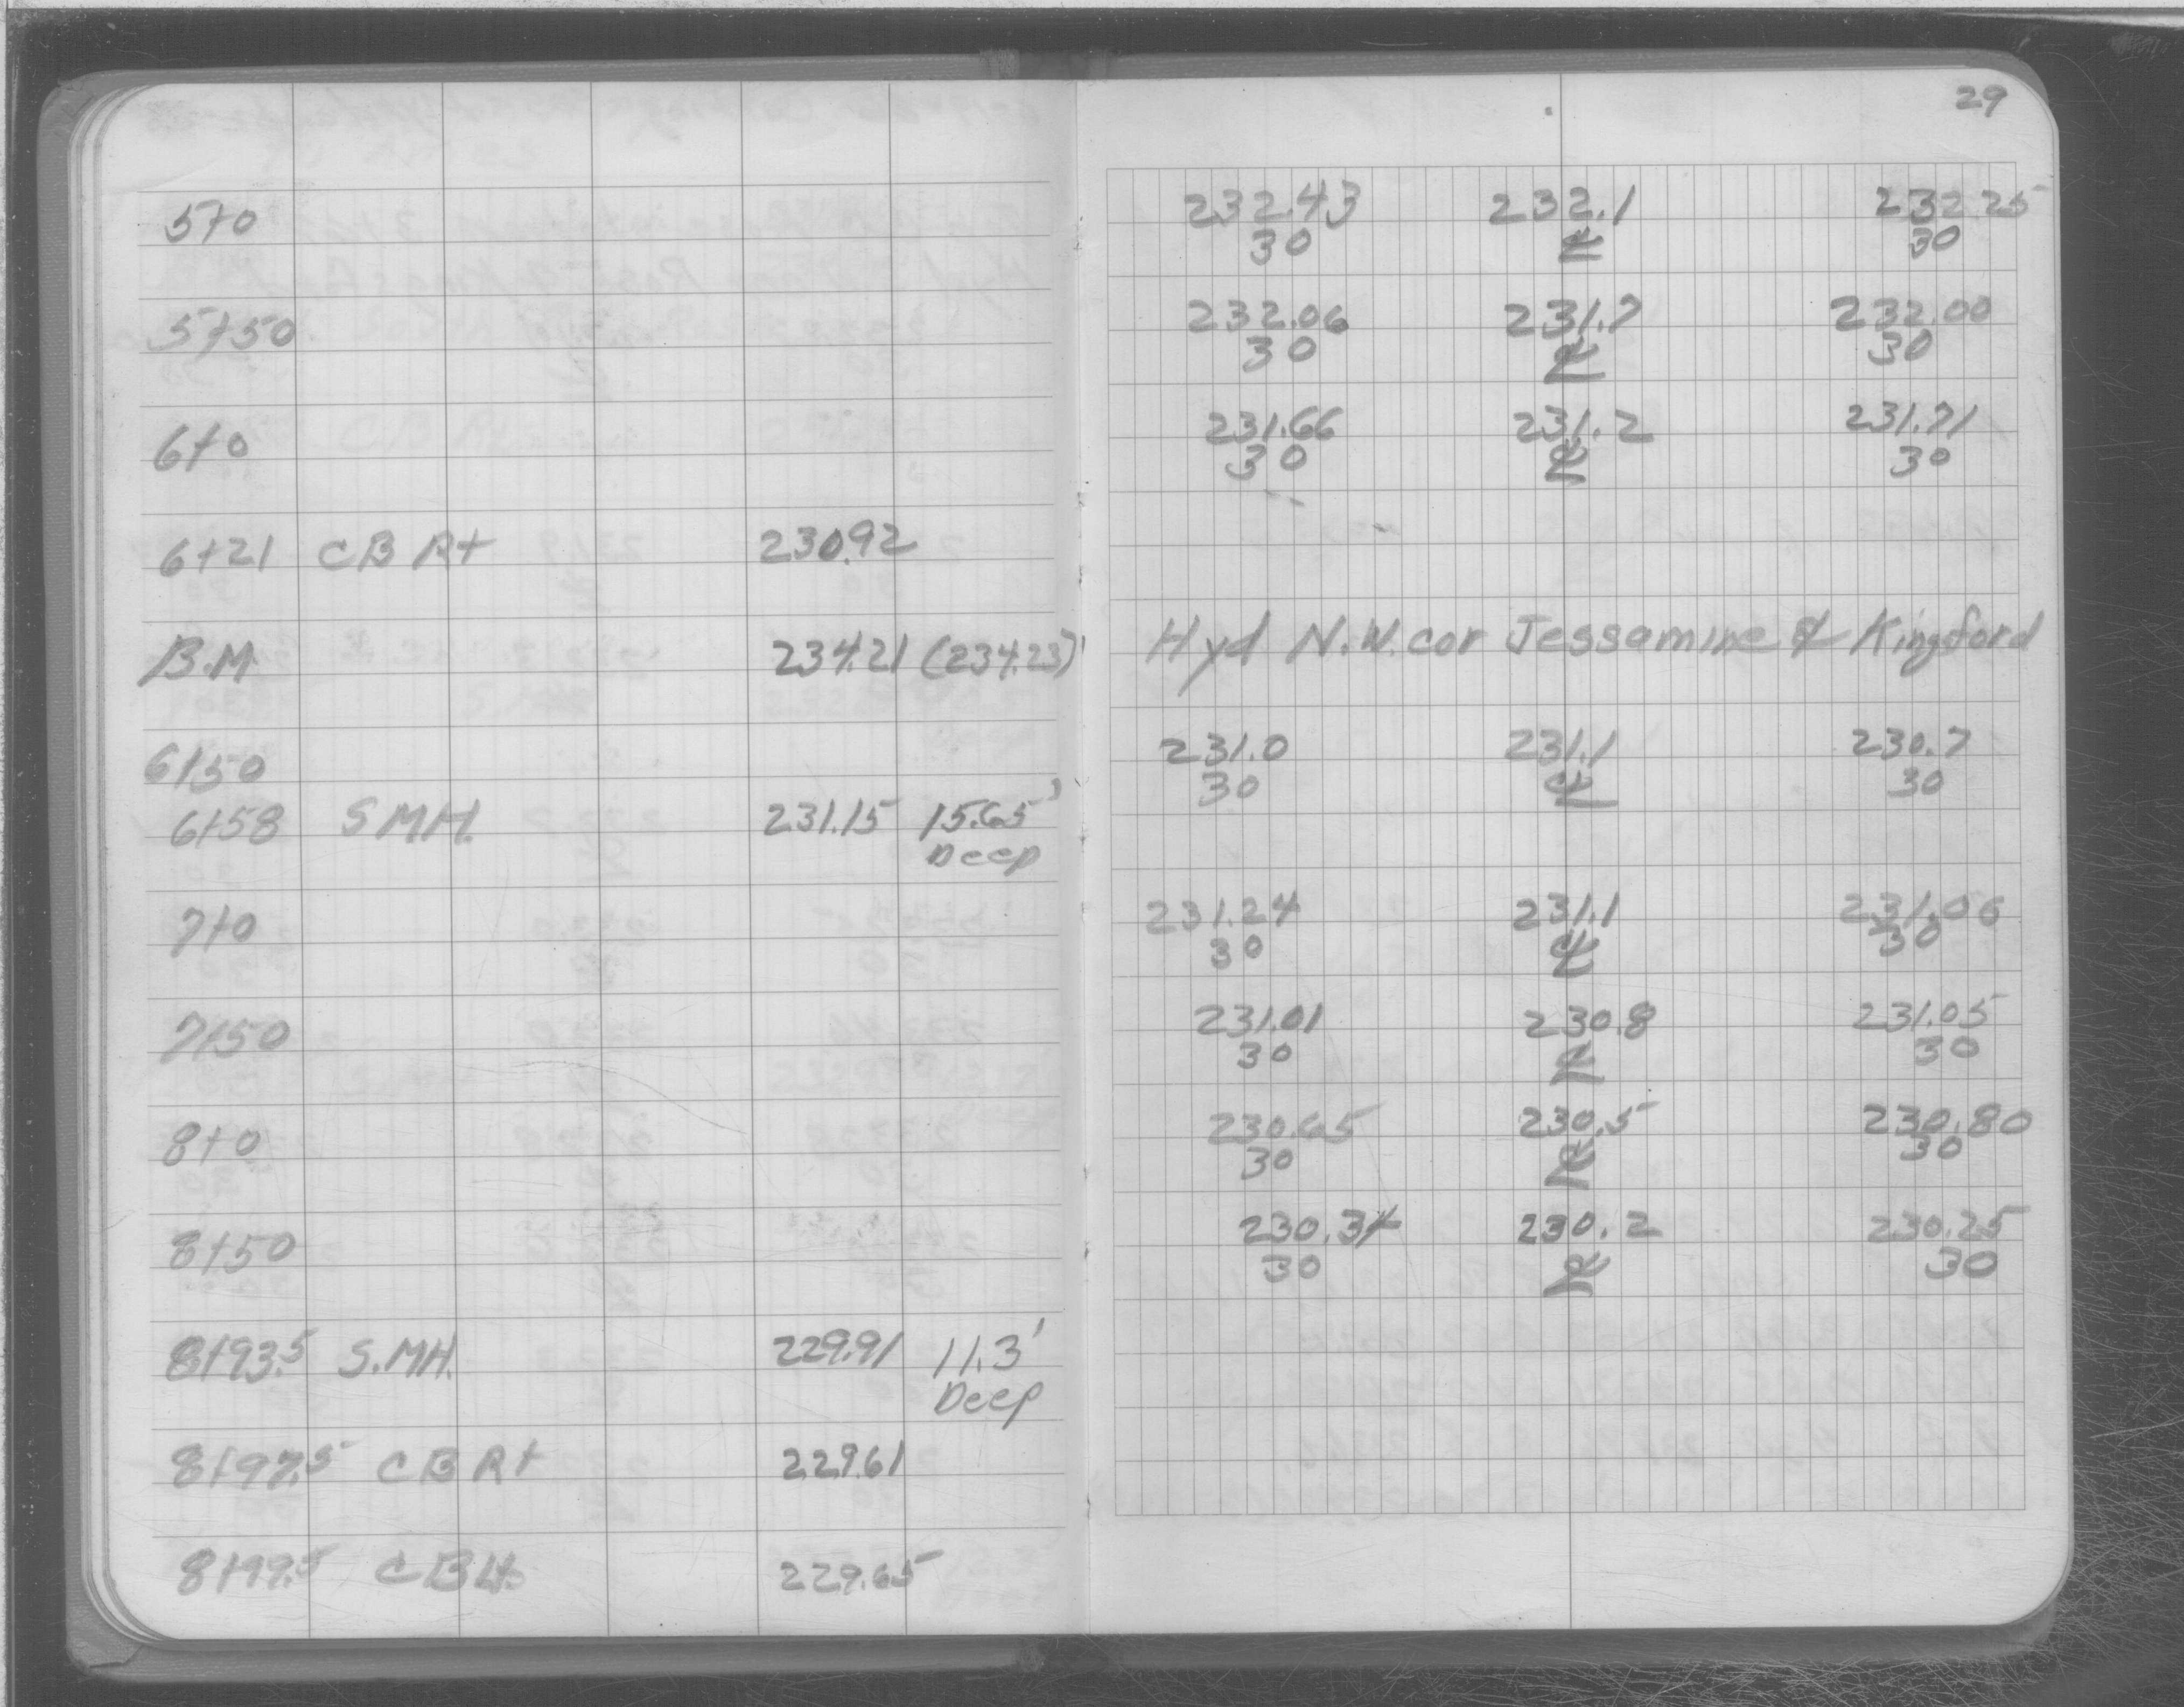 29
5+0 232.43 232.1 232.25
30 ℄ 30
5+50 232.06 231.7 232.00
30 ℄ 30
6+0 231.66 231.2 231.71
30 ℄ 30
6+21 CB Rt 230.92
B.M 234.21 (234.23) Hyd N.W. cor Jessamine & Kingsford
6+50 231.0 231.1 230.7
30 ℄ 30
6+58 SMH. 231.15 15.65'
Deep
7+0 231.24 231.1 231.06
30 ℄ 30
7+50 231.01 230.8 231.05
30 ℄ 30
8+0 230.65 230.5 230.80
30 ℄ 30
8+50 230.34 230.2 230.25
30 ℄ 30
8+93.5 S.MH. 229.91 11.3'
Deep
8+97.5 CB Rt 229.61
8+97.5 CB Lt. 229.65